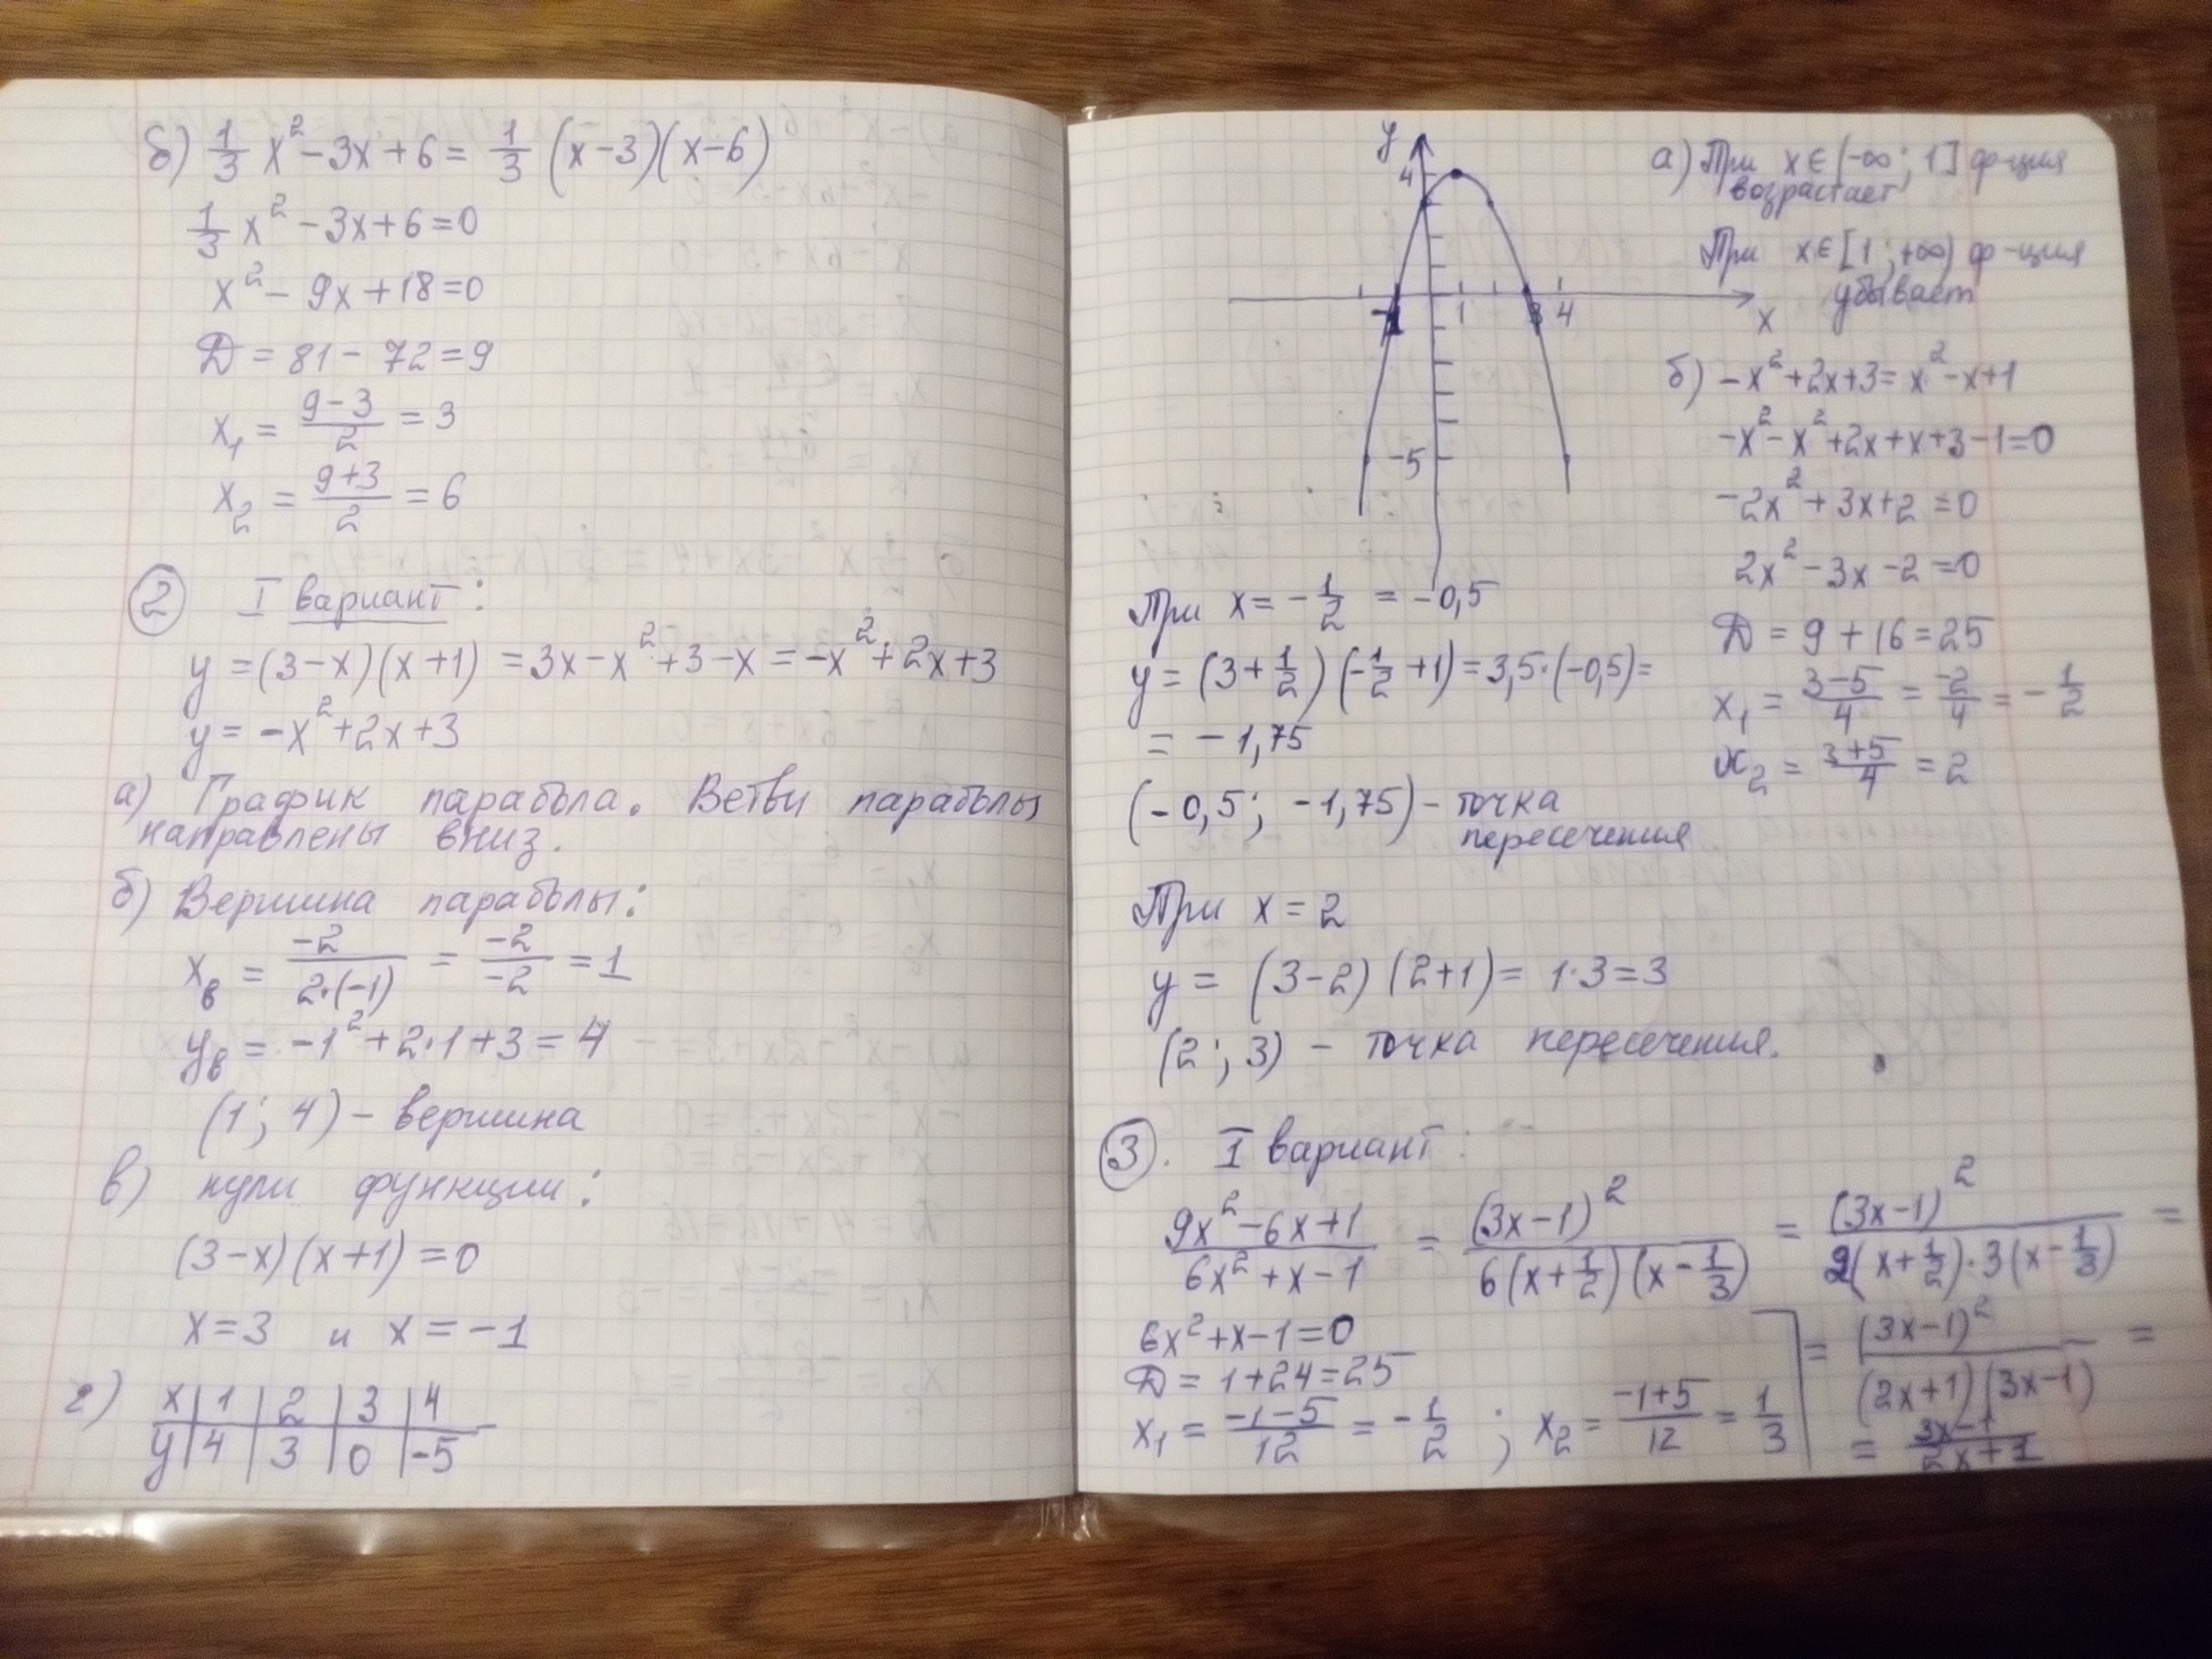 б) 1/3 x² - 3x + 6 = 1/3 (x-3)(x-6)
1/3 x² - 3x + 6 = 0
x² - 9x + 18 = 0
D = 81 - 72 = 9
x₁ = (9-3)/2 = 3
x₂ = (9+3)/2 = 6
② I вариант:
y = (3-x)(x+1) = 3x - x² + 3 - x = -x² + 2x + 3
y = -x² + 2x + 3
а) График парабола. Ветви параболы
направлены вниз.
б) Вершина параболы:
xв = -2/(2·(-1)) = -2/-2 = 1
yв = -1² + 2·1 + 3 = 4
(1; 4) - вершина
в) нули функции:
(3-x)(x+1) = 0
x = 3 и x = -1
г) x | 1 | 2 | 3 | 4
y | 4 | 3 | 0 | -5
y
4
-1 1 3 4
x
-5
а) При x ∈ (-∞; 1] ф-ция
возрастает
При x ∈ [1; +∞) ф-ция
убывает
б) -x² + 2x + 3 = x² - x + 1
-x² - x² + 2x + x + 3 - 1 = 0
-2x² + 3x + 2 = 0
2x² - 3x - 2 = 0
D = 9 + 16 = 25
x₁ = (3-5)/4 = -2/4 = -1/2
x₂ = (3+5)/4 = 2
При x = -1/2 = -0,5
y = (3 + 1/2)(-1/2 + 1) = 3,5·(-0,5) =
= -1,75
(-0,5; -1,75) - точка
пересечения
При x = 2
y = (3-2)(2+1) = 1·3 = 3
(2; 3) - точка пересечения.
③. I вариант:
(9x² - 6x + 1)/(6x² + x - 1) = (3x-1)²/(6(x + 1/2)(x - 1/3)) = (3x-1)²/(2(x + 1/2)·3(x - 1/3)) =
6x² + x - 1 = 0
D = 1 + 24 = 25
x₁ = (-1-5)/12 = -1/2 ; x₂ = (-1+5)/12 = 1/3
= (3x-1)²/((2x+1)(3x-1)) =
= (3x-1)/(2x+1)